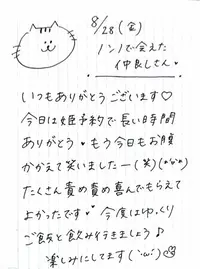 8/28(金)
ノンノで会えた
仲良しさん♥
いつもありがとうございます♡
今日は姫予約で長い時間
ありがとう♥もう今日もお腹
かかえて笑いましたー(笑)(*°∀°*)
たくさん責め責め喜んでもらえて
よかったです♥今度はゆっくり
ご飯と飲み行きましょう♪
楽しみにしてます(´･ω･`)♡